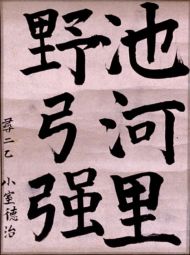 池河里
野弓强
尋二乙 小室徳治